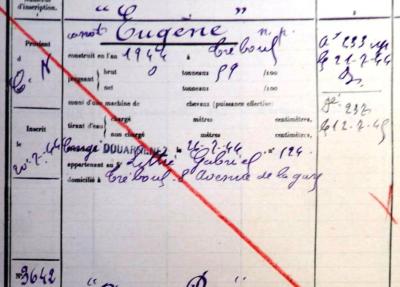 d'inscription.
" Eugène "
canot n. p.
Provient construit en l'an 1944 à Tréboul
d
C. N jaugeant brut 0 tonneaux 59 /100
net tonneaux /100
muni d'une machine de chevaux (puissance effective)
Inscrit tirant d'eau chargé mètres centimètres,
non chargé mètres centimètres,
le 20-7-44 DOUARNENEZ le 21-7-44 n° 124
appartenant au Sr Gabriel
domicilié à Tréboul 8 Avenue de la gare
à 233
le 21-7-44
237
le 12-7-45
N° 9642